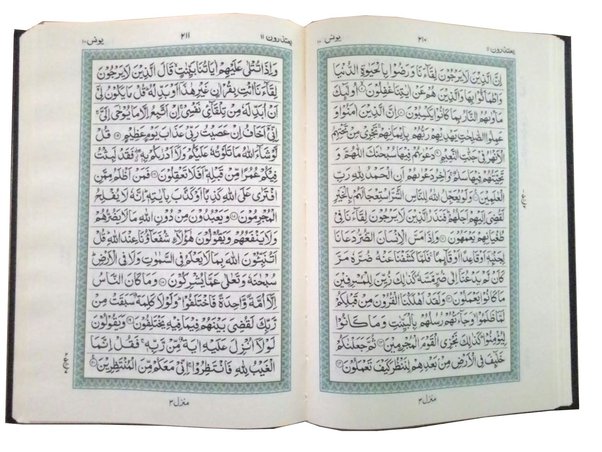 یعتذرون ۱۱ ۲۱۰ یونس ۱۰
اِنَّ الَّذِیْنَ لَا یَرْجُوْنَ لِقَآءَنَا وَرَضُوْا بِالْحَیٰوةِ الدُّنْیَا
وَاطْمَاَنُّوْا بِهَا وَالَّذِیْنَ هُمْ عَنْ اٰیٰتِنَا غٰفِلُوْنَ ۙ۝ اُولٰٓئِكَ
مَاْوٰىهُمُ النَّارُ بِمَا كَانُوْا یَكْسِبُوْنَ ۝ اِنَّ الَّذِیْنَ اٰمَنُوْا وَ
عَمِلُوا الصّٰلِحٰتِ یَهْدِیْهِمْ رَبُّهُمْ بِاِیْمَانِهِمْ ۚ تَجْرِیْ مِنْ تَحْتِهِمُ
الْاَنْهٰرُ فِیْ جَنّٰتِ النَّعِیْمِ ۝ دَعْوٰىهُمْ فِیْهَا سُبْحٰنَكَ اللّٰهُمَّ وَ
تَحِیَّتُهُمْ فِیْهَا سَلٰمٌ ۚ وَاٰخِرُ دَعْوٰىهُمْ اَنِ الْحَمْدُ لِلّٰهِ رَبِّ
الْعٰلَمِیْنَ ۝ وَلَوْ یُعَجِّلُ اللّٰهُ لِلنَّاسِ الشَّرَّ اسْتِعْجَالَهُمْ بِالْخَیْرِ
لَقُضِیَ اِلَیْهِمْ اَجَلُهُمْ ؕ فَنَذَرُ الَّذِیْنَ لَا یَرْجُوْنَ لِقَآءَنَا فِیْ
طُغْیَانِهِمْ یَعْمَهُوْنَ ۝ وَاِذَا مَسَّ الْاِنْسَانَ الضُّرُّ دَعَانَا
لِجَنْۢبِهٖۤ اَوْ قَاعِدًا اَوْ قَآئِمًا ۚ فَلَمَّا كَشَفْنَا عَنْهُ ضُرَّهٗ مَرَّ
كَاَنْ لَّمْ یَدْعُنَاۤ اِلٰی ضُرٍّ مَّسَّهٗ ؕ كَذٰلِكَ زُیِّنَ لِلْمُسْرِفِیْنَ
مَا كَانُوْا یَعْمَلُوْنَ ۝ وَلَقَدْ اَهْلَكْنَا الْقُرُوْنَ مِنْ قَبْلِكُمْ
لَمَّا ظَلَمُوْا ۙ وَجَآءَتْهُمْ رُسُلُهُمْ بِالْبَیِّنٰتِ وَمَا كَانُوْا
لِیُؤْمِنُوْا ؕ كَذٰلِكَ نَجْزِی الْقَوْمَ الْمُجْرِمِیْنَ ۝ ثُمَّ جَعَلْنٰكُمْ
خَلٰٓئِفَ فِی الْاَرْضِ مِنْۢ بَعْدِهِمْ لِنَنْظُرَ كَیْفَ تَعْمَلُوْنَ ۝
منزل ۳
یعتذرون ۱۱ ۲۱۱ یونس ۱۰
وَاِذَا تُتْلٰی عَلَیْهِمْ اٰیَاتُنَا بَیِّنٰتٍ ۙ قَالَ الَّذِیْنَ لَا یَرْجُوْنَ
لِقَآءَنَا ائْتِ بِقُرْاٰنٍ غَیْرِ هٰذَاۤ اَوْ بَدِّلْهُ ؕ قُلْ مَا یَكُوْنُ لِیْۤ
اَنْ اُبَدِّلَهٗ مِنْ تِلْقَآئِ نَفْسِیْ ۚ اِنْ اَتَّبِعُ اِلَّا مَا یُوْحٰۤی اِلَیَّ ۚ
اِنِّیْۤ اَخَافُ اِنْ عَصَیْتُ رَبِّیْ عَذَابَ یَوْمٍ عَظِیْمٍ ۝ قُلْ
لَّوْ شَآءَ اللّٰهُ مَا تَلَوْتُهٗ عَلَیْكُمْ وَلَاۤ اَدْرٰىكُمْ بِهٖ ۖ فَقَدْ لَبِثْتُ
فِیْكُمْ عُمُرًا مِّنْ قَبْلِهٖ ؕ اَفَلَا تَعْقِلُوْنَ ۝ فَمَنْ اَظْلَمُ مِمَّنِ
افْتَرٰی عَلَی اللّٰهِ كَذِبًا اَوْ كَذَّبَ بِاٰیٰتِهٖ ؕ اِنَّهٗ لَا یُفْلِحُ
الْمُجْرِمُوْنَ ۝ وَیَعْبُدُوْنَ مِنْ دُوْنِ اللّٰهِ مَا لَا یَضُرُّهُمْ
وَلَا یَنْفَعُهُمْ وَیَقُوْلُوْنَ هٰۤؤُلَآءِ شُفَعَآؤُنَا عِنْدَ اللّٰهِ ؕ قُلْ
اَتُنَبِّـُٔوْنَ اللّٰهَ بِمَا لَا یَعْلَمُ فِی السَّمٰوٰتِ وَلَا فِی الْاَرْضِ ؕ
سُبْحٰنَهٗ وَتَعٰلٰی عَمَّا یُشْرِكُوْنَ ۝ وَمَا كَانَ النَّاسُ
اِلَّاۤ اُمَّةً وَّاحِدَةً فَاخْتَلَفُوْا ؕ وَلَوْلَا كَلِمَةٌ سَبَقَتْ مِنْ
رَّبِّكَ لَقُضِیَ بَیْنَهُمْ فِیْمَا فِیْهِ یَخْتَلِفُوْنَ ۝ وَیَقُوْلُوْنَ
لَوْلَاۤ اُنْزِلَ عَلَیْهِ اٰیَةٌ مِّنْ رَّبِّهٖ ۚ فَقُلْ اِنَّمَا
الْغَیْبُ لِلّٰهِ فَانْتَظِرُوْا ۚ اِنِّیْ مَعَكُمْ مِّنَ الْمُنْتَظِرِیْنَ ۝
منزل ۳